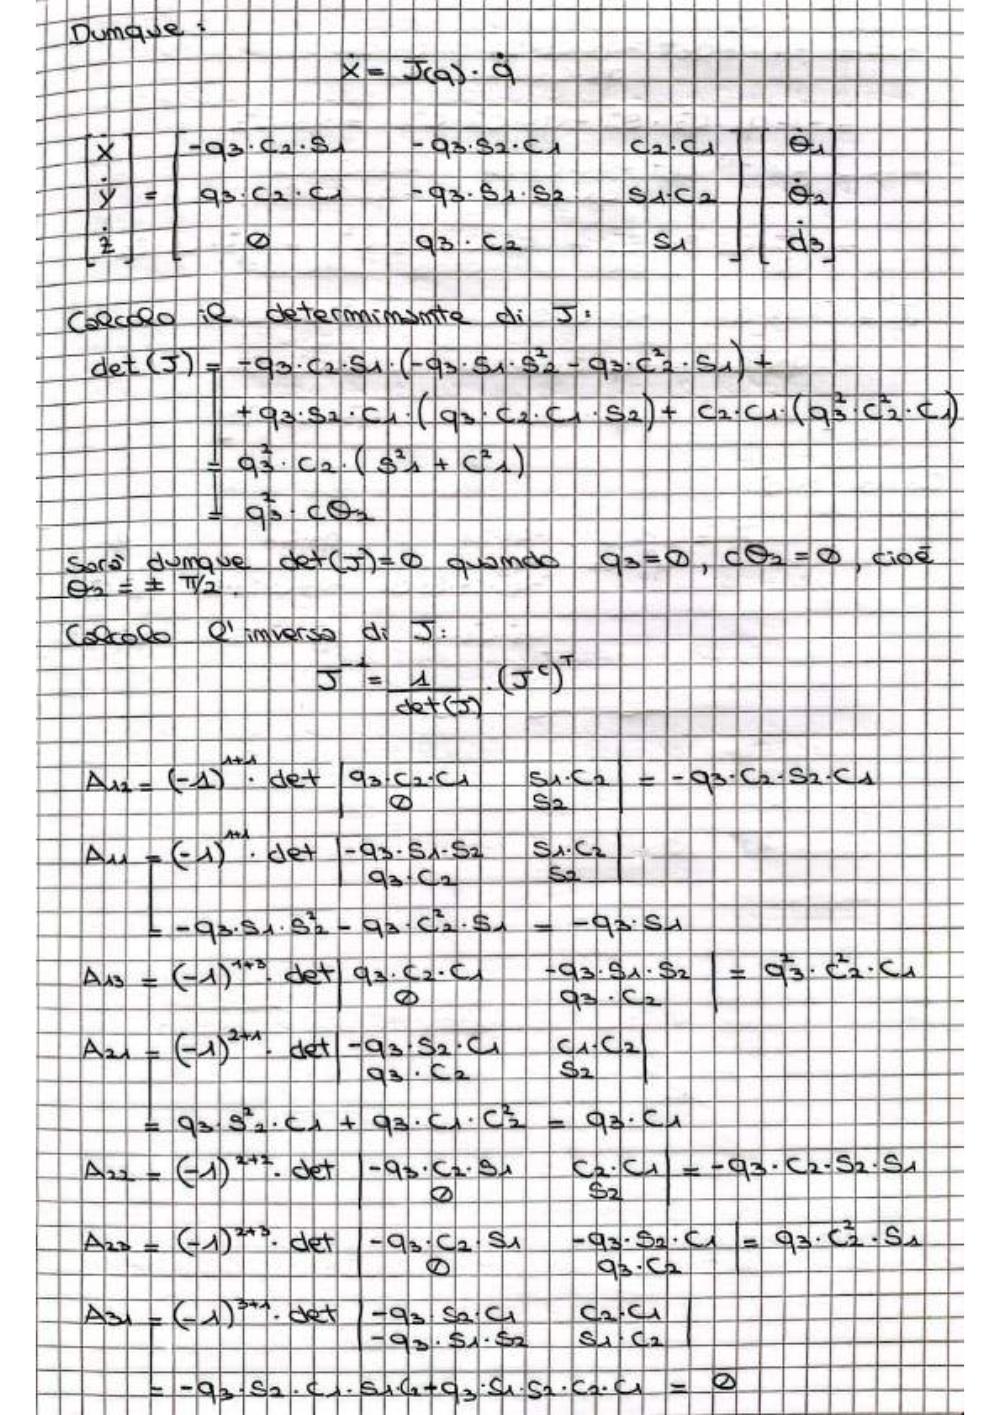 Dunque:
ẋ = J(q) · q̇
[ẋ] [-q3·c2·s1 -q3·s2·c1 c2·c1] [θ̇1]
[ẏ] = [q3·c2·c1 -q3·s1·s2 s1·c2] [θ̇2]
[ż] [0 q3·c2 s1] [ḋ3]
Calcolo il determinante di J:
det(J) = -q3·c2·s1·(-q3·s1·s2² - q3·c2²·s1) +
+ q3·s2·c1·(q3·c2·c1·s2) + c2·c1·(q3²·c2²·c1)
= q3²·c2·(s²1 + c²1)
= q3²·cθ2
Sarà dunque det(J)=0 quando q3=0, cθ2=0, cioè
θ2 = ± π/2.
Calcolo l'inversa di J:
J⁻¹ = 1/det(J) · (Jᶜ)ᵀ
A12 = (-1)¹⁺¹· det |q3·c2·c1 s1·c2| = -q3·c2·s2·c1
|0 s2|
A11 = (-1)¹⁺¹· det |-q3·s1·s2 s1·c2|
|q3·c2 s2|
= -q3·s1·s2² - q3·c2²·s1 = -q3·s1
A13 = (-1)¹⁺³· det |q3·c2·c1 -q3·s1·s2| = q3²·c2²·c1
|0 q3·c2|
A21 = (-1)²⁺¹· det |-q3·s2·c1 c1·c2|
|q3·c2 s2|
= q3·s2²·c1 + q3·c1·c2² = q3·c1
A22 = (-1)²⁺²· det |-q3·c2·s1 c2·c1| = -q3·c2·s2·s1
|0 s2|
A23 = (-1)²⁺³· det |-q3·c2·s1 -q3·s2·c1| = q3·c2²·s1
|0 q3·c2|
A31 = (-1)³⁺¹· det |-q3·s2·c1 c2·c1|
|-q3·s1·s2 s1·c2|
= -q3·s2·c1·s1·c2+q3·s1·s2·c2·c1 = 0